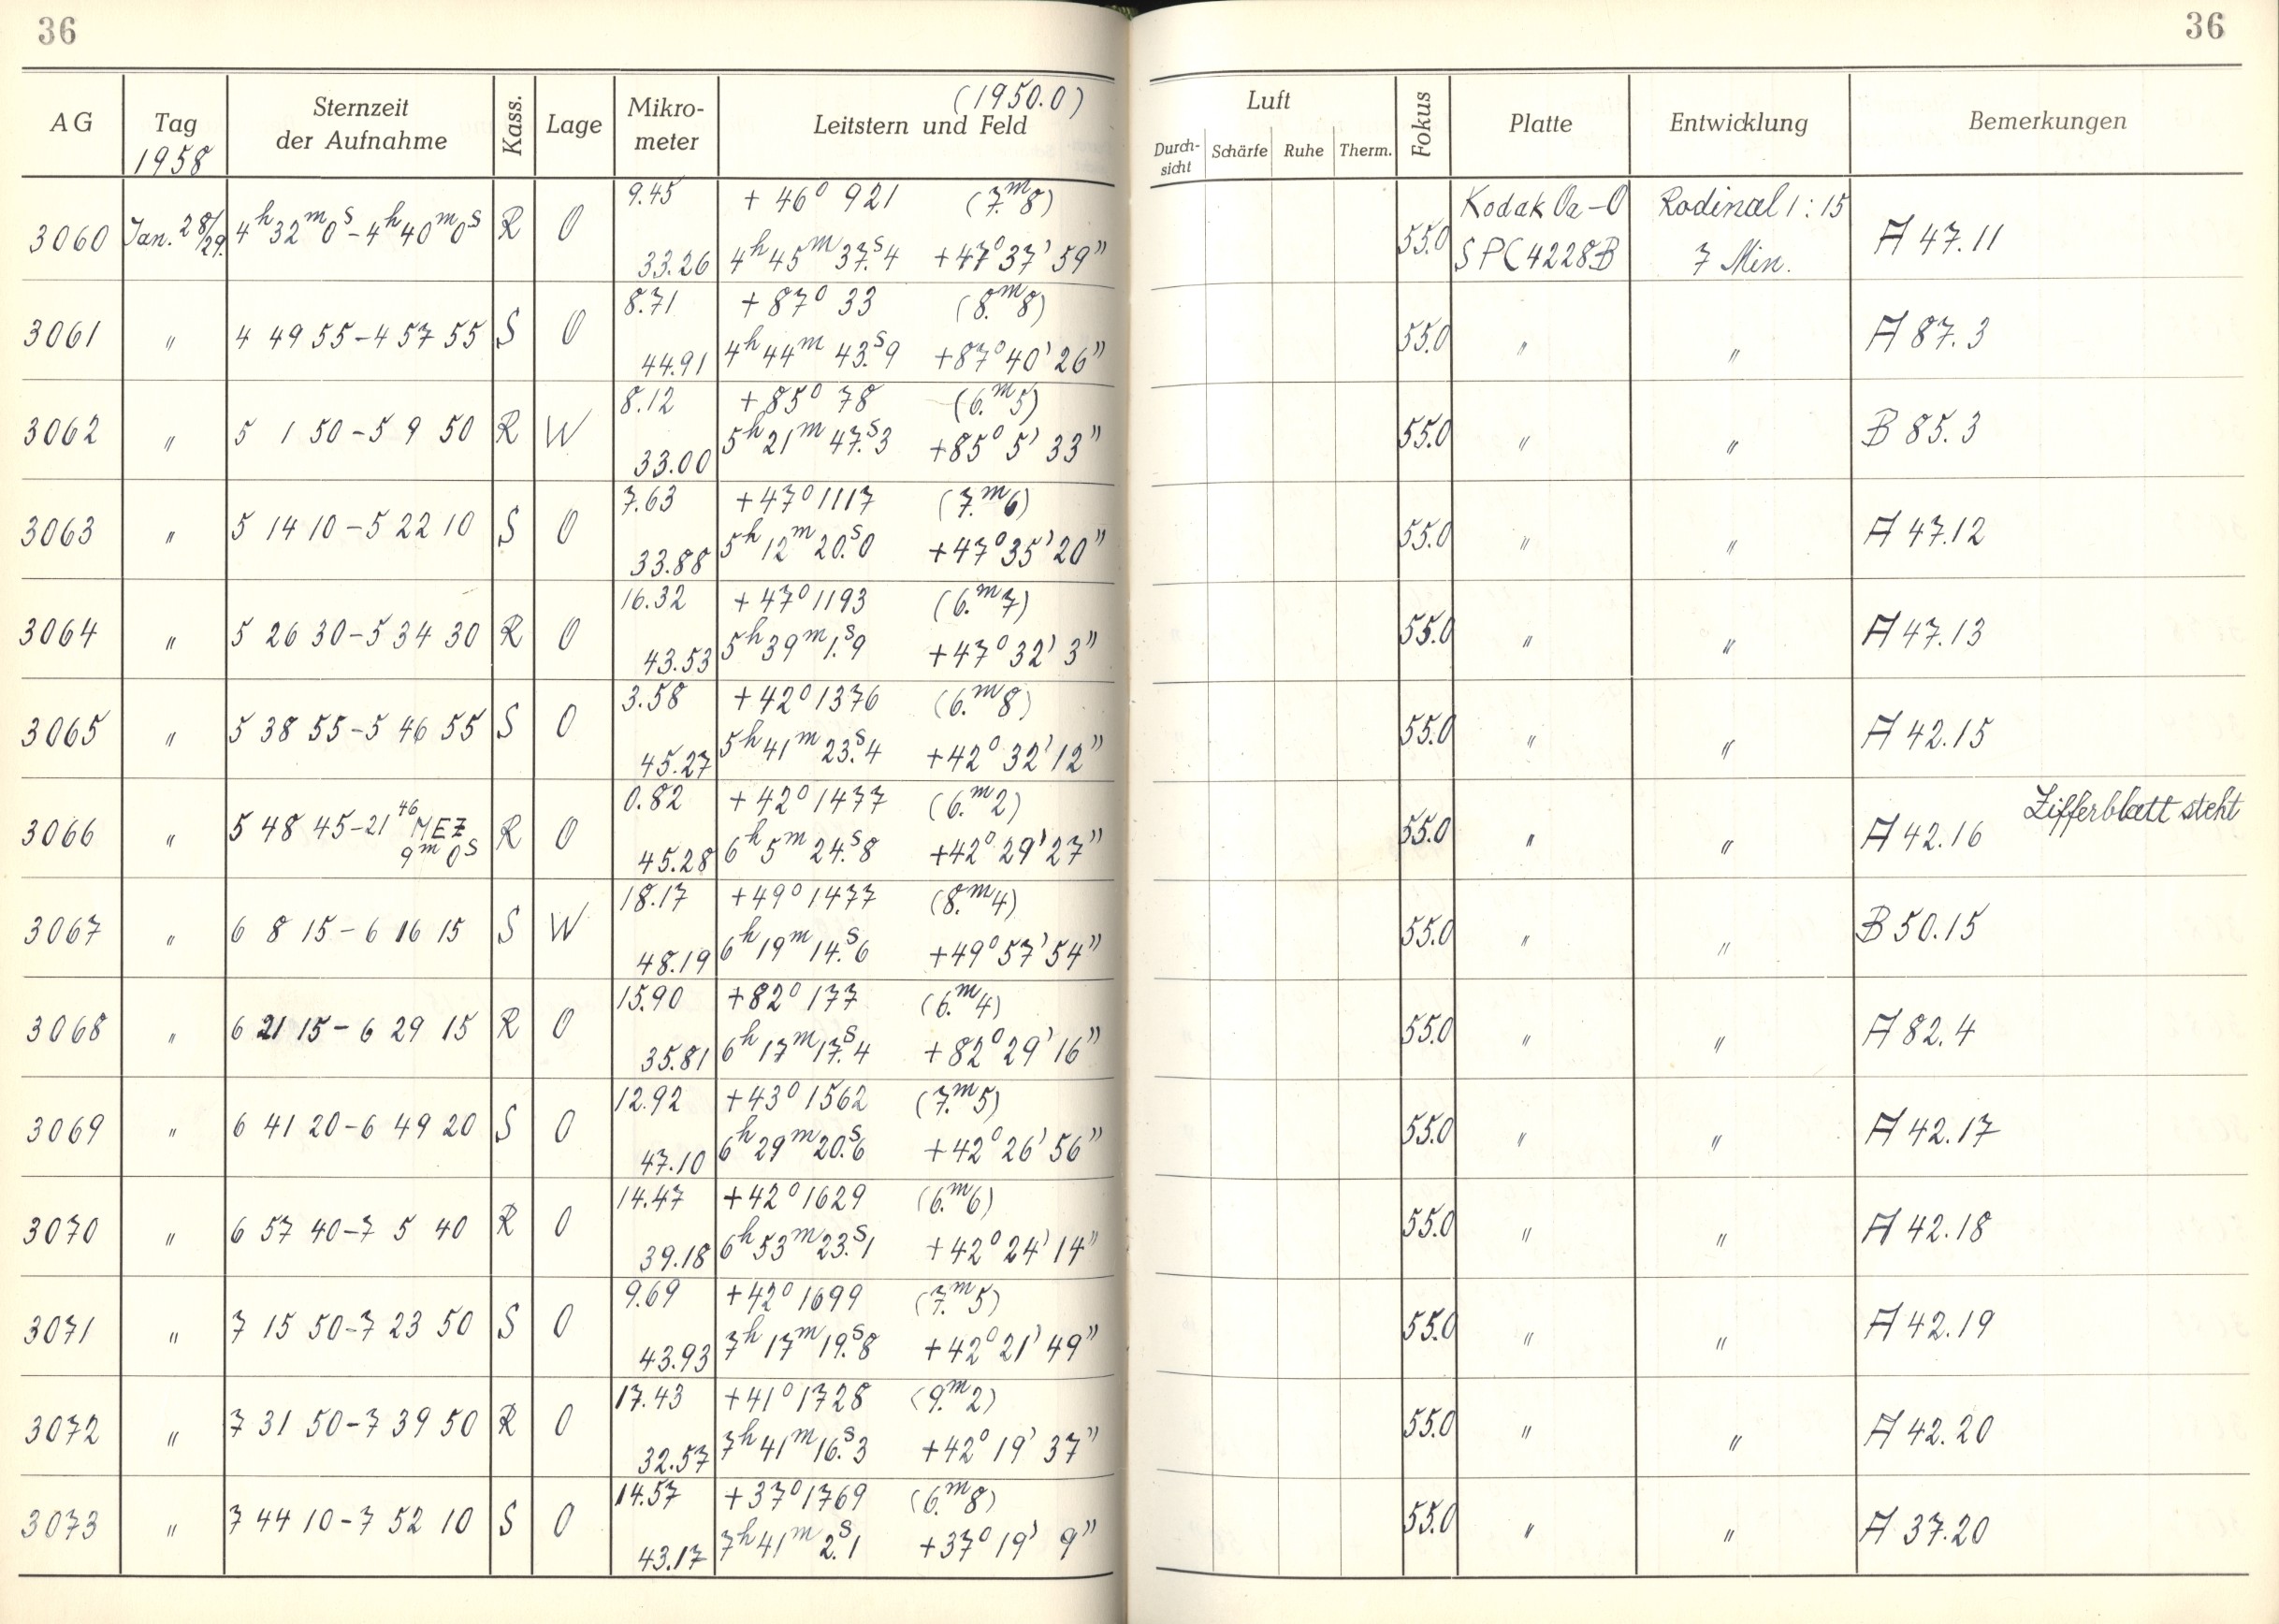 36
36
AG
Tag
1958
Sternzeit
der Aufnahme
Kass.
Lage
Mikro-
meter
(1950.0)
Leitstern und Feld
Luft
Durch-
sicht
Schärfe
Ruhe
Therm.
Fokus
Platte
Entwicklung
Bemerkungen
9.45 +46° 921 (7.ᵐ8) Kodak Oa-O Rodinal 1:15
3060 Jan. 28/29. 4ʰ32ᵐ0ˢ-4ʰ40ᵐ0ˢ R O 55.0 A 47.11
33.26 4ʰ45ᵐ37.ˢ4 +47°37'59" SPC4228B 7 Min.
8.71 +87° 33 (8.ᵐ8)
3061 " 4 49 55-4 57 55 S O 55.0 " " A 87.3
44.91 4ʰ44ᵐ43.ˢ9 +87°40'26"
8.12 +85° 78 (6.ᵐ5)
3062 " 5 1 50-5 9 50 R W 55.0 " " B 85.3
33.00 5ʰ21ᵐ47.ˢ3 +85°5'33"
7.63 +47°1117 (7.ᵐ6)
3063 " 5 14 10-5 22 10 S O 55.0 " " A 47.12
33.88 5ʰ12ᵐ20.ˢ0 +47°35'20"
16.32 +47°1193 (6.ᵐ7)
3064 " 5 26 30-5 34 30 R O 55.0 " " A 47.13
43.53 5ʰ39ᵐ1.ˢ9 +47°32'3"
3.58 +42°1376 (6.ᵐ8)
3065 " 5 38 55-5 46 55 S O 55.0 " " A 42.15
45.27 5ʰ41ᵐ23.ˢ4 +42°32'12"
0.82 +42°1477 (6.ᵐ2) Zifferblatt steht
3066 " 5 48 45-21 46 MEZ R O 55.0 " " A 42.16
9ᵐ0ˢ 45.28 6ʰ5ᵐ24.ˢ8 +42°29'27"
18.17 +49°1477 (8.ᵐ4)
3067 " 6 8 15-6 16 15 S W 55.0 " " B 50.15
48.19 6ʰ19ᵐ14.ˢ6 +49°57'54"
15.90 +82°177 (6.ᵐ4)
3068 " 6 21 15-6 29 15 R O 55.0 " " A 82.4
35.81 6ʰ17ᵐ17.ˢ4 +82°29'16"
12.92 +43°1562 (7.ᵐ5)
3069 " 6 41 20-6 49 20 S O 55.0 " " A 42.17
47.10 6ʰ29ᵐ20.ˢ6 +42°26'56"
14.47 +42°1629 (6.ᵐ6)
3070 " 6 57 40-7 5 40 R O 55.0 " " A 42.18
39.18 6ʰ53ᵐ23.ˢ1 +42°24'14"
9.69 +42°1699 (7.ᵐ5)
3071 " 7 15 50-7 23 50 S O 55.0 " " A 42.19
43.93 7ʰ17ᵐ19.ˢ8 +42°21'49"
17.43 +41°1728 (9.ᵐ2)
3072 " 7 31 50-7 39 50 R O 55.0 " " A 42.20
32.57 7ʰ41ᵐ16.ˢ3 +42°19'37"
14.57 +37°1769 (6.ᵐ8)
3073 " 7 44 10-7 52 10 S O 55.0 " " A 37.20
43.17 7ʰ41ᵐ2.ˢ1 +37°19'9"